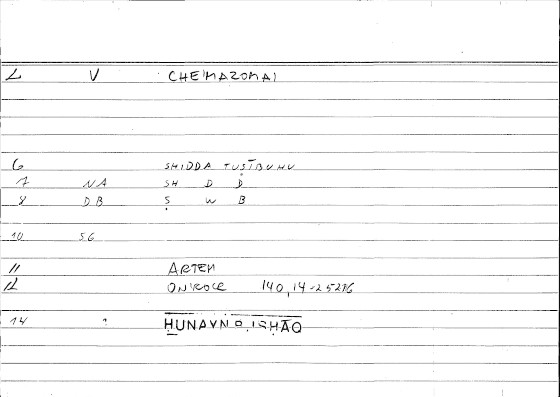 L V CHEMAZOMAI
6 SHIDDA TUSTBUHU
7 NA SH D D
8 DB S W B
10 56
11 ARTEM
12 140,14-25276
14 HUNAYN ISHĀQ